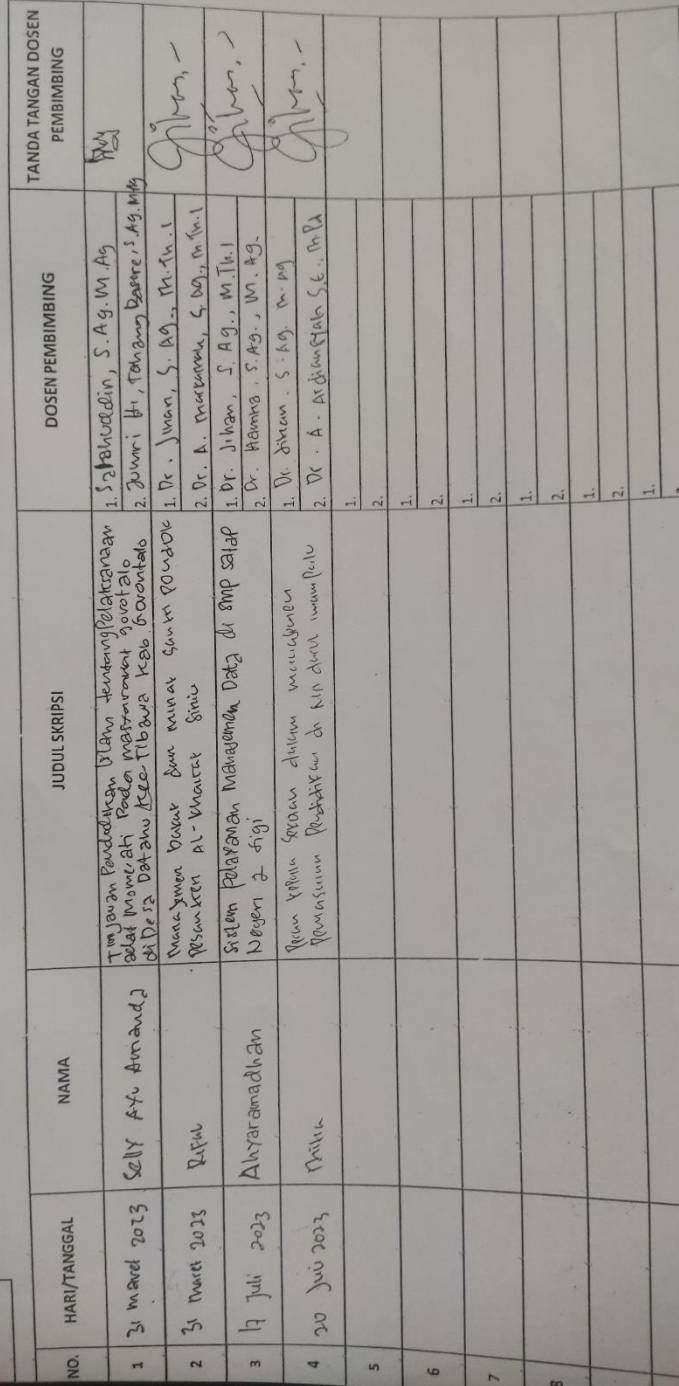 NO. HARI/TANGGAL NAMA JUDUL SKRIPSI DOSEN PEMBIMBING TANDA TANGAN DOSEN PEMBIMBING
1 31 maret 2023 Selly Ayu Amanda
Tinjauan Pendidikan Islam tentang Pelaksanaan
adat Momeati Pada masyarakat gorotalo
di Desa Datahu Kec Tibawa Kab. Gorontalo
1. Salahuddin, S.Ag. M.Ag
2. Jumri Hi, Tahang Basire, S.Ag. M.Ag
2 31 maret 2023 Rifal
Manajemen bakat dan minat Santri Pondok
Pesantren Al-khairat Siniu
1. Dr. Jihan, S.Ag., M.Th.I
2. Dr. A. Markarma, S.Ag., M.Th.I
3 17 Juli 2023 Ahyaramadhan
Sistem Pelayanan Manajemen Data di SMP Satap
Negeri 2 Sigi
1. Dr. Jihan, S.Ag., M.Th.I
2. Dr. Hamka, S.Ag., M.Ag.
4 20 Juli 2023
Peran kepala Sekolah dalam manajemen
Pemasaran Pendidikan di
1. Dr. Jihan. S.Ag. M.Ag
2. Dr. A. Ardiansyah S.E., M.Pd
5
1.
2.
6
1.
2.
7
1.
2.
8
1.
2.
1.
2.
1.